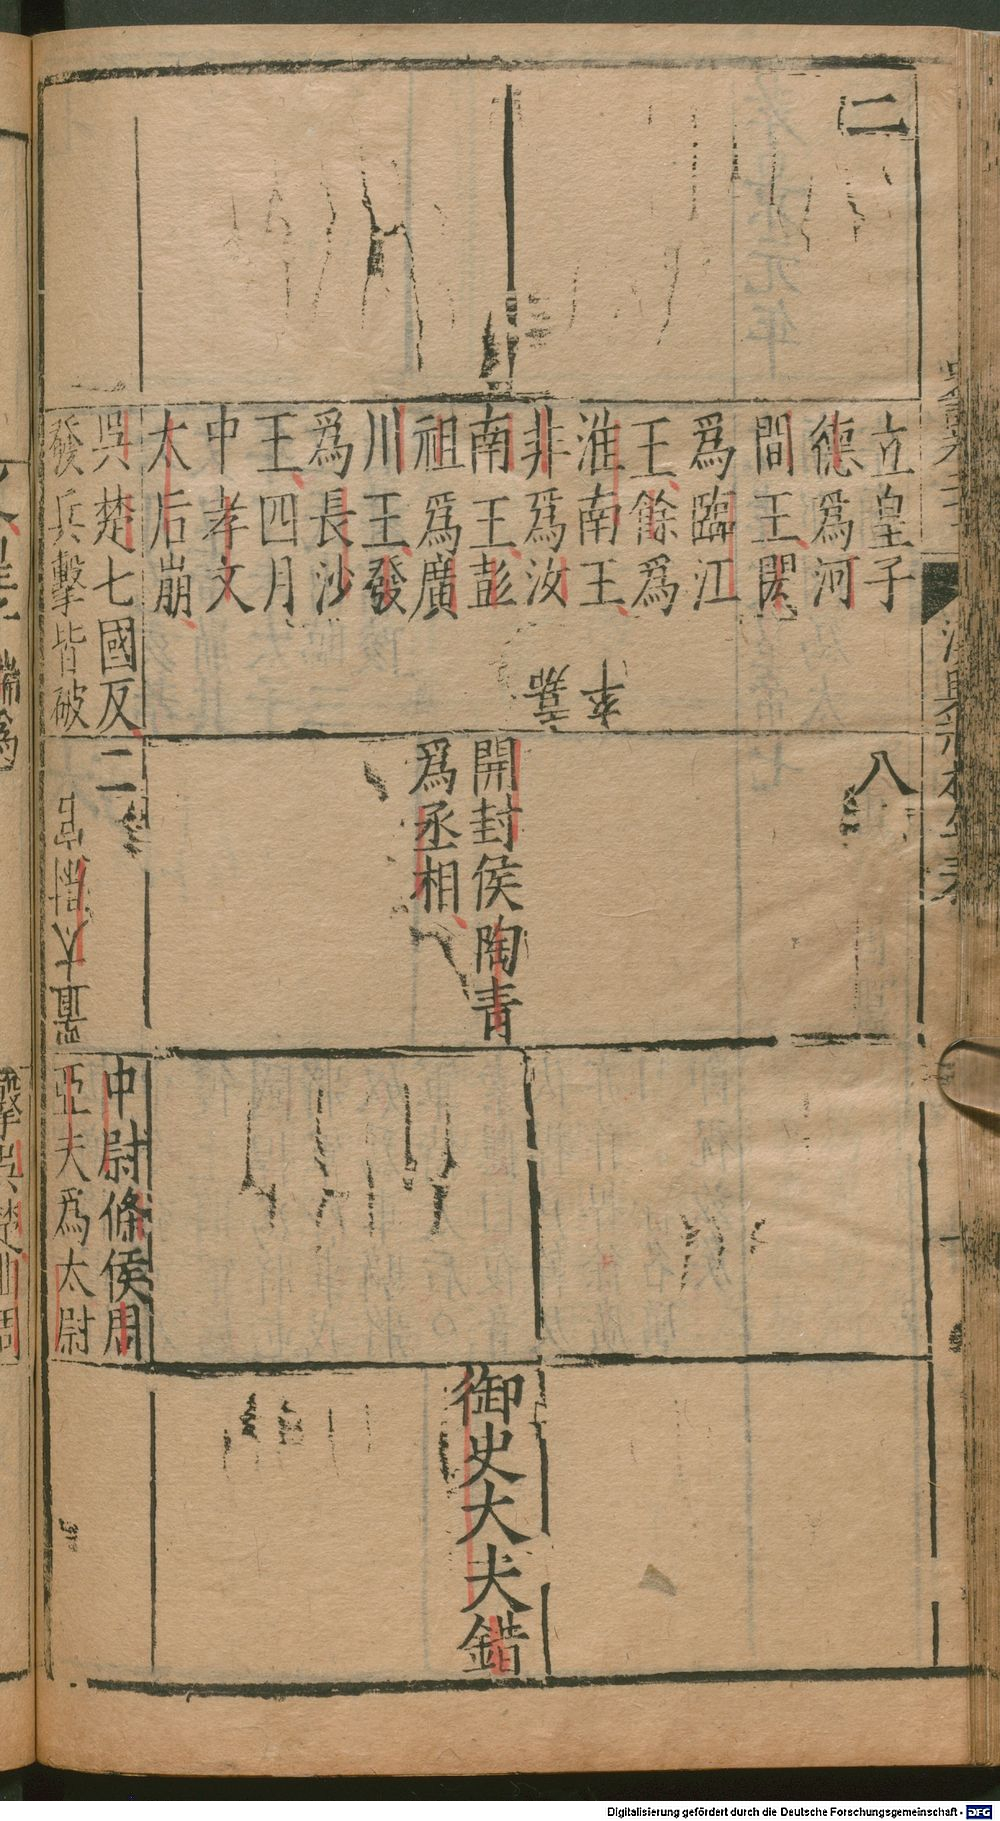 二
立皇子
德爲河
間王閼
爲臨江
王餘爲
淮南王
非爲汝
南王彭
祖爲廣
川王發
爲長沙
王四月
中孝文
太后崩
嘉
卒
吳楚七國反
發兵擊皆破
八
開封侯陶青
爲丞相
二
置太尉官
中尉條侯周
亞夫爲太尉
御史大夫錯
擊吳楚
Digitalisierung gefördert durch die Deutsche Forschungsgemeinschaft - DFG